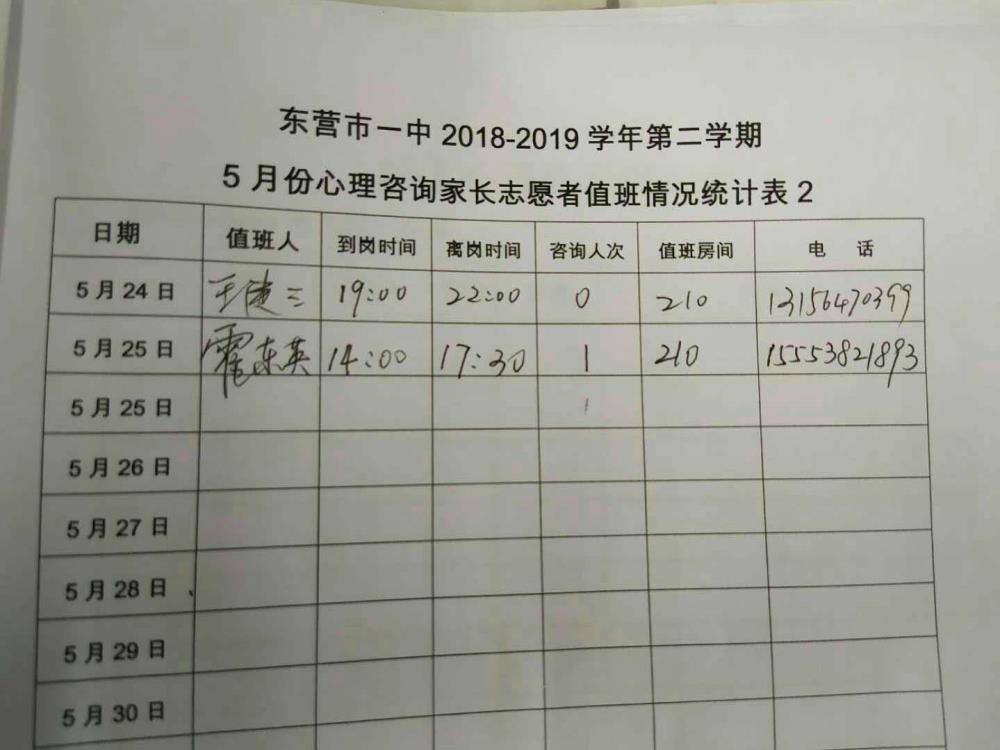 东营市一中 2018-2019 学年第二学期
5 月份心理咨询家长志愿者值班情况统计表 2
日期 值班人 到岗时间 离岗时间 咨询人次 值班房间 电 话
5 月 24 日 王建三 19:00 22:00 0 210 13156470399
5 月 25 日 霍东英 14:00 17:30 1 210 15553821893
5 月 25 日
5 月 26 日
5 月 27 日
5 月 28 日
5 月 29 日
5 月 30 日